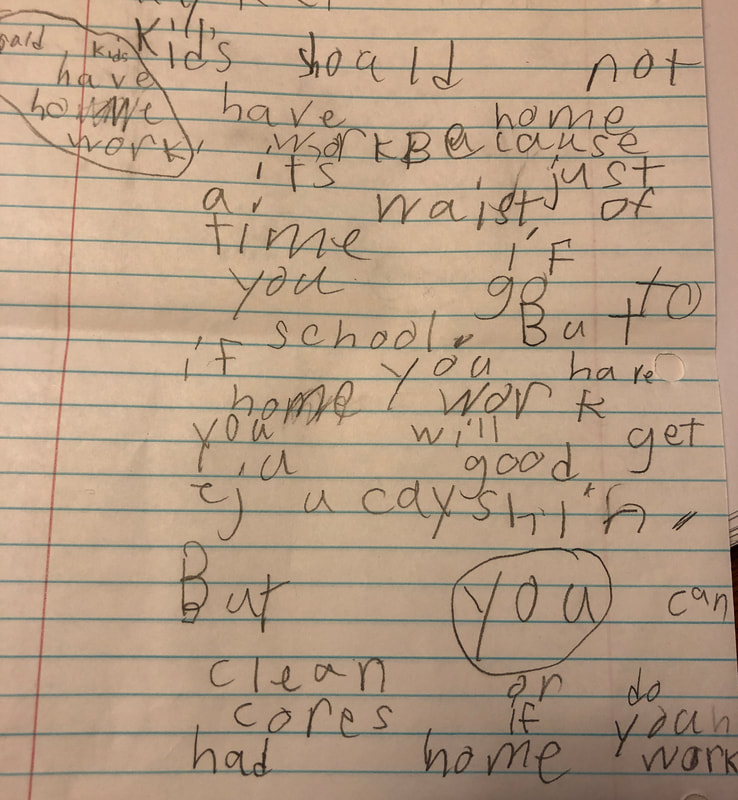 Kid's should not
kids
have
home
work,
have home
work Because
its just
a waist of
time if
you go to
school. But
if you have
home work
you will get
a good
ej ucdyshin
But you can
clean or do
cores if you
had home work